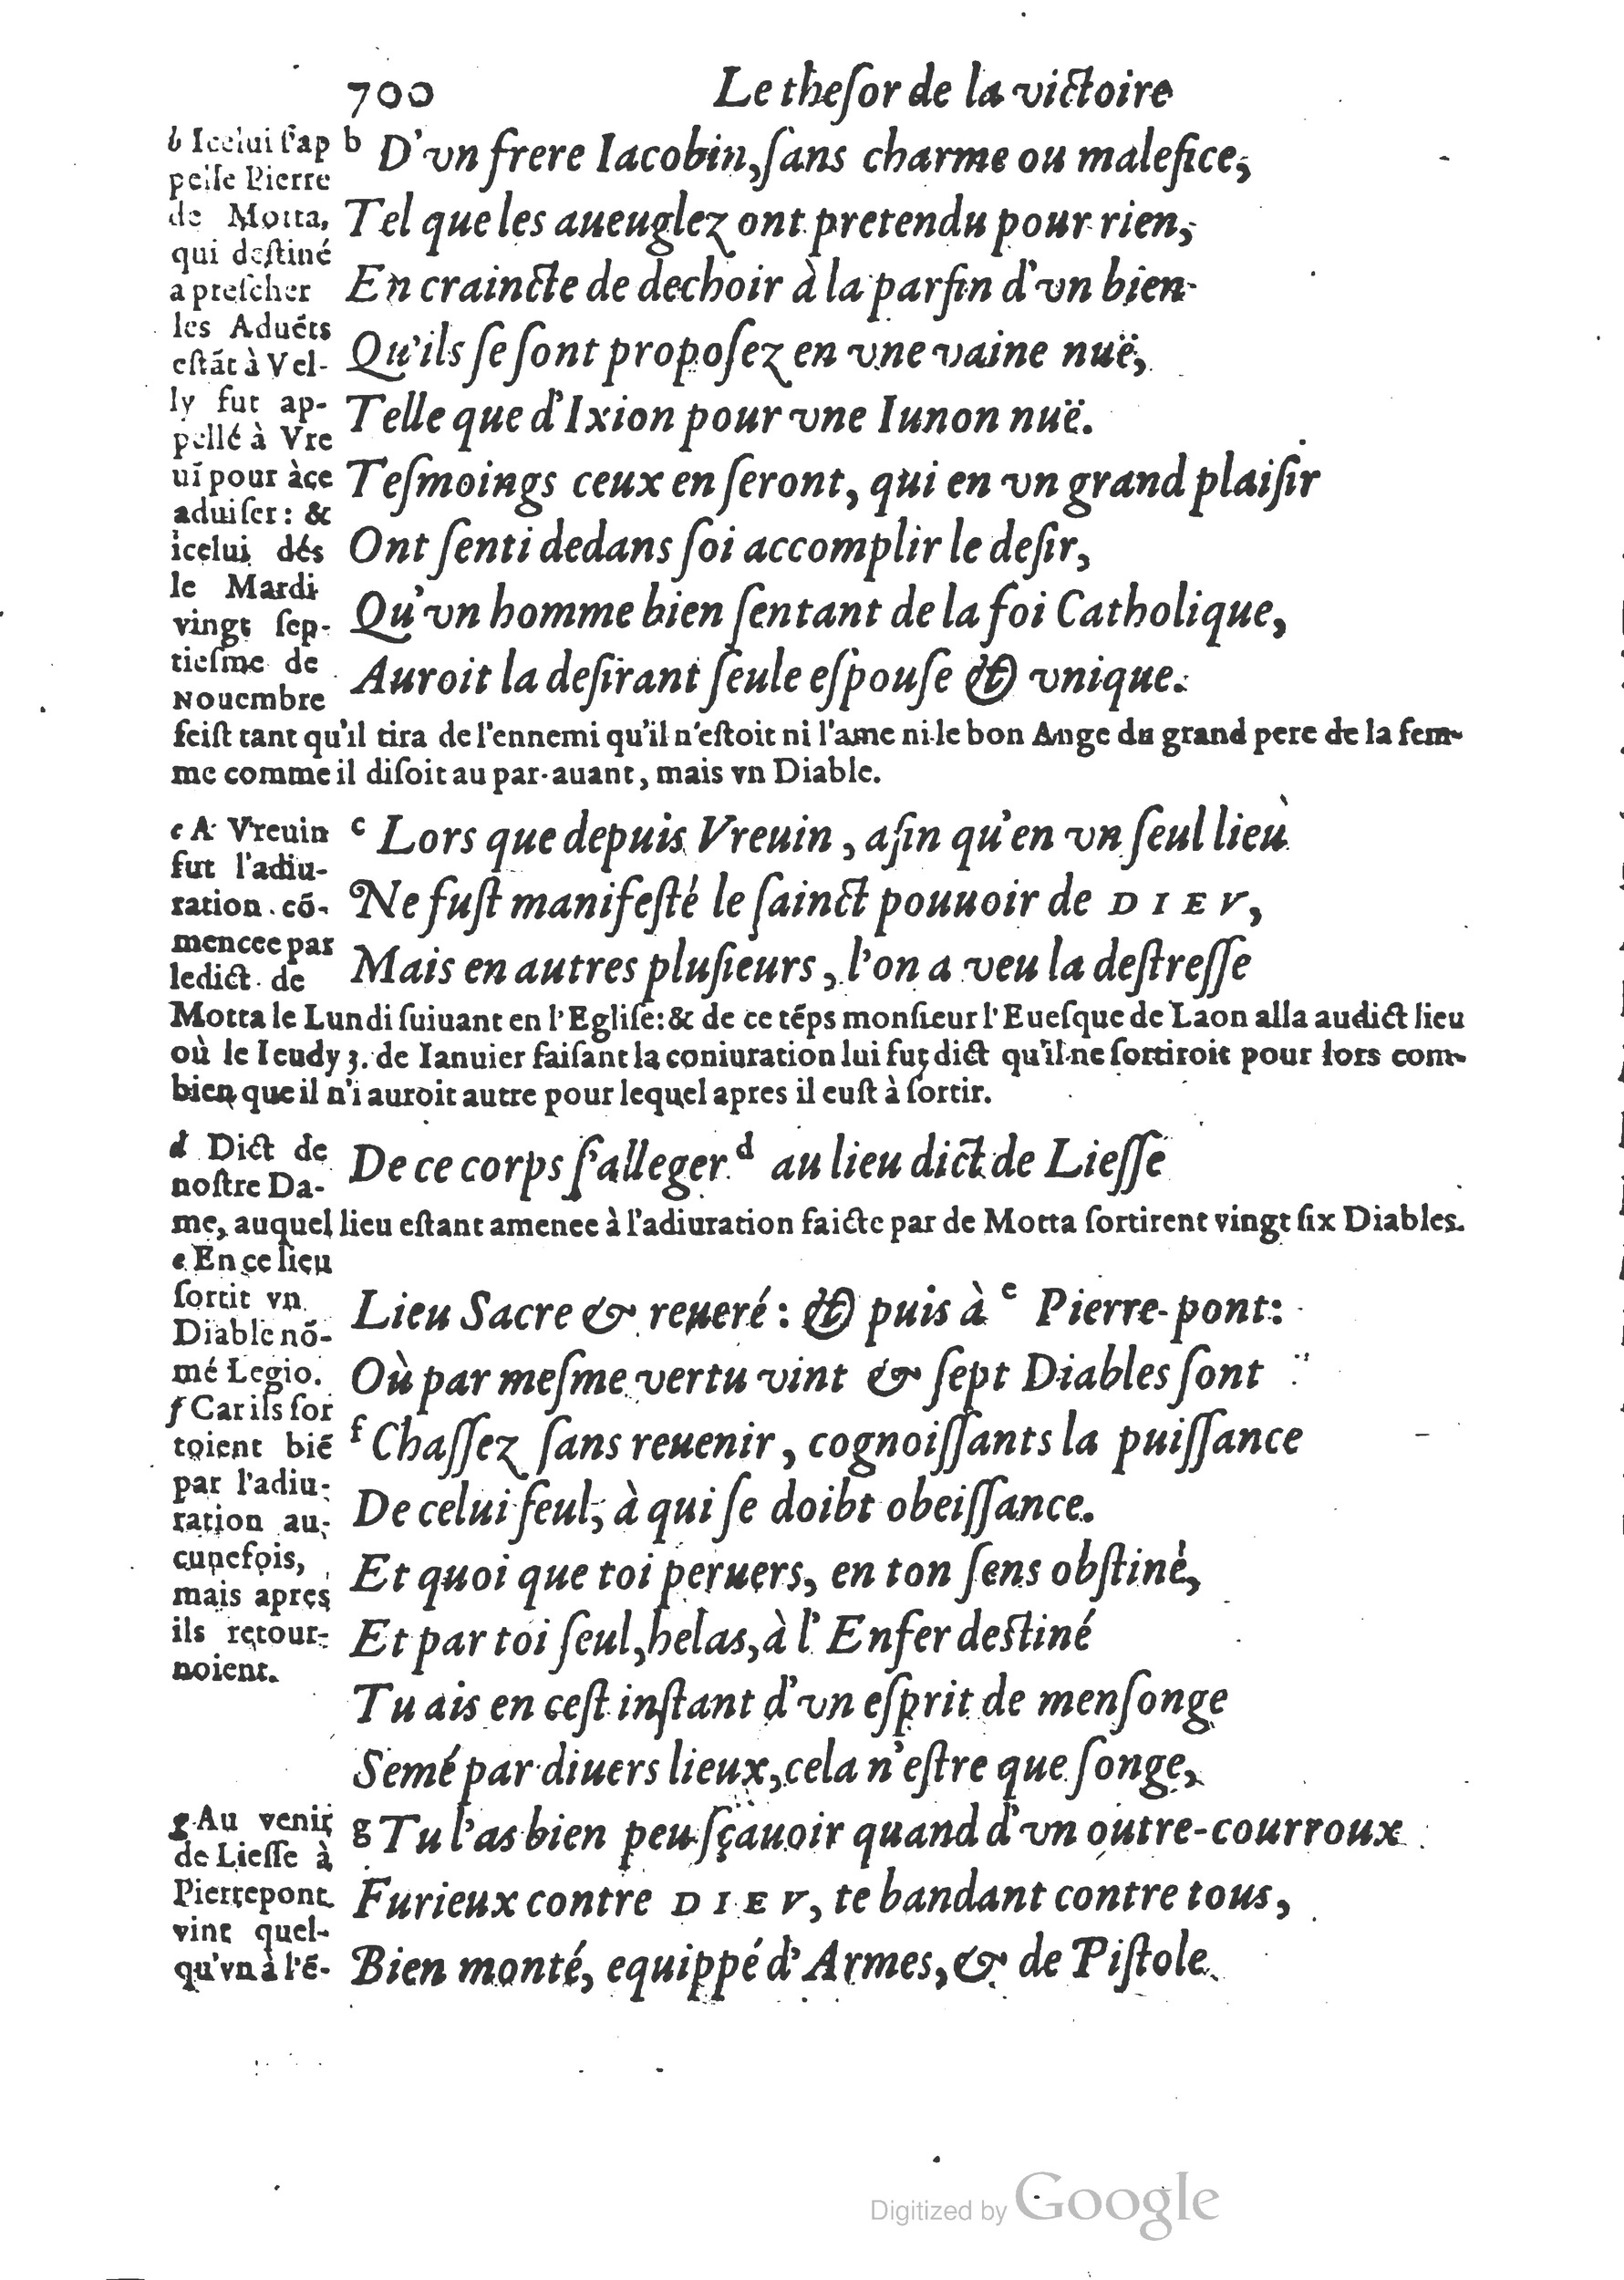 700 Le theſor de la victoire
b Icelui ſ'ap
pelle Pierre
de Motta,
qui deſtiné
a preſcher
les Aduéts
eſtāt à Vel-
ly fut ap-
pellé à Vre
uī pour àce
aduiſer: &
icelui dés
le Mardi
vingt ſep-
tieſme de
Nouembre
feiſt tant qu'il tira de l'ennemi qu'il n'eſtoit ni l'ame ni le bon Ange du grand pere de la fem-
me comme il diſoit au par-auant, mais vn Diable.
b D'vn frere Iacobin, ſans charme ou malefice,
Tel que les aueuglez ont pretendu pour rien,
En craincte de dechoir à la parfin d'vn bien
Qu'ils ſe ſont propoſez en vne vaine nuë,
Telle que d'Ixion pour vne Iunon nuë.
Teſmoings ceux en ſeront, qui en vn grand plaiſir
Ont ſenti dedans ſoi accomplir le deſir,
Qu'vn homme bien ſentant de la foi Catholique,
Auroit la deſirant ſeule eſpouſe & vnique.
c A Vreuin
fut l'adiu-
ration cō-
mencee par
ledict de
Motta le Lundi ſuiuant en l'Egliſe: & de ce tēps monſieur l'Eueſque de Laon alla audict lieu
où le Ieudy 3. de Ianuier faiſant la coniuration lui fut dict qu'il ne ſortiroit pour lors com-
bien que il n'i auroit autre pour lequel apres il euſt à ſortir.
c Lors que depuis Vreuin, afin qu'en vn ſeul lieu
Ne fuſt manifeſté le ſainct pouuoir de DIEV,
Mais en autres pluſieurs, l'on a veu la deſtreſſe
d Dict de
noſtre Da-
me, auquel lieu eſtant amenee à l'adiuration faicte par de Motta ſortirent vingt ſix Diables.
De ce corps ſ'alleger d au lieu dict de Lieſſe
e En ce lieu
ſortit vn
Diable nō-
mé Legio.
f Car ils ſor
toient biē
par l'adiu-
ration au-
cunefois,
mais apres
ils retour-
noient.
Lieu Sacre & reueré: & puis à e Pierre-pont:
Où par meſme vertu vint & ſept Diables ſont
f Chaſſez ſans reuenir, cognoiſſants la puiſſance
De celui ſeul, à qui ſe doibt obeiſſance.
Et quoi que toi peruers, en ton ſens obſtiné,
Et par toi ſeul, helas, à l'Enfer deſtiné
Tu ais en ceſt inſtant d'vn eſprit de menſonge
Semé par diuers lieux, cela n'eſtre que ſonge,
g Au venir
de Lieſſe à
Pierrepont
vint quel-
qu'vn à l'ē-
g Tu l'as bien peu ſçauoir quand d'vn outre-courroux
Furieux contre DIEV, te bandant contre tous,
Bien monté, equippé d'Armes, & de Piſtole
Digitized by Google